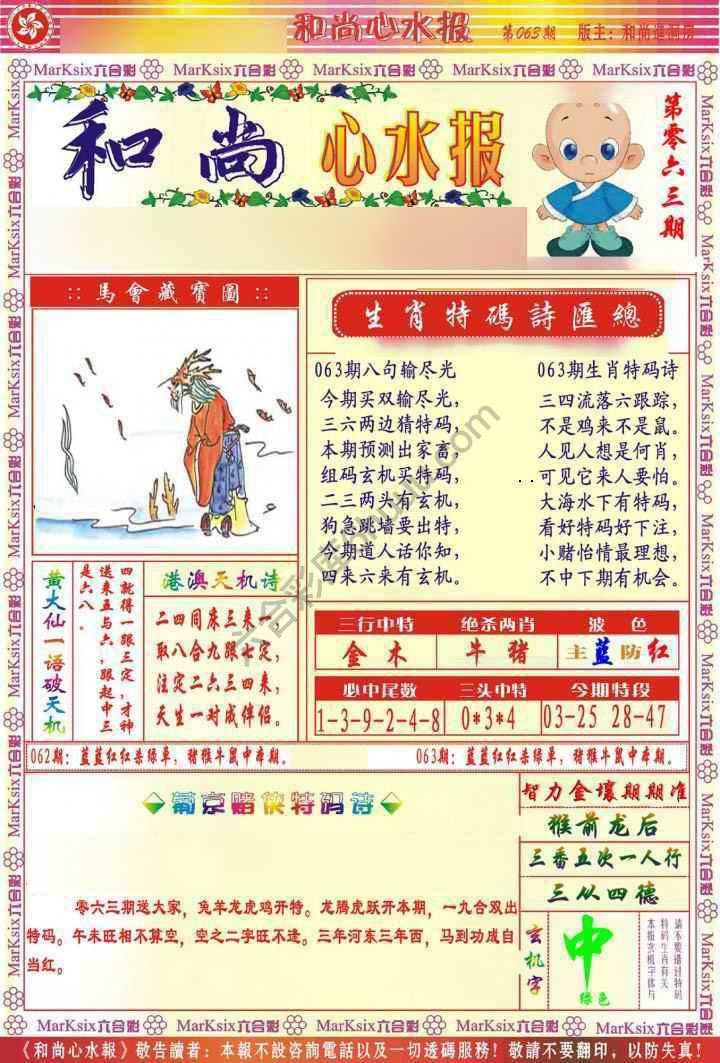 和尚心水报 第063期 版主：和尚進洞房
MarKsix六合彩 MarKsix六合彩 MarKsix六合彩 MarKsix六合彩 MarKsix六合彩
和尚 心水报
第零六三期
::馬會藏寶圖::
生肖特碼詩匯總
063期八句输尽光
今期买双输尽光，
三六两边猜特码，
本期预测出家畜，
组码玄机买特码，
二三两头对玄机，
狗急跳墙要出特，
今期道人话你知，
四来六来有玄机。
063期生肖特码诗
三四流落六跟踪，
不是鸡来不是鼠。
人见人想是何肖，
可见它来人要怕。
大海水下有特码，
看好特码好下注，
小赌怡情最理想，
不中下期有机会。
黄大仙一语破天机
四就得一跟三定，才神
送来五与六，跟起中三
是六八。
港澳天机诗
二四同床三来一，
取八合九跟七定，
注定二六三四来，
天生一对成伴侣。
三行中特 绝杀两肖 波色
金木 牛猪 主蓝防红
必中尾数 三头中特 今期特段
1-3-9-2-4-8 0*3*4 03-25 28-47
062期：蓝蓝红红杀绿单，猪猴牛鼠中本期。
063期：蓝蓝红红杀绿单，猪猴牛鼠中本期。
葡京赌侠特码诗
零六三期送大家，兔羊龙虎鸡开特。龙腾虎跃开本期，一九合双出
特码。午未旺相不算空，空之二字旺不逢。三年河东三年西，马到功成自
当红。
智力金壤期期准
猴前龙后
三番五次一人行
三从四德
玄机字
中
绿色
请不要错过特码
特码生肖有关
本报玄机字体与
六合彩库
.com
《和尚心水報》敬告讀者：本報不設咨詢電話以及一切透碼服務！敬請不要翻印，以防失真！